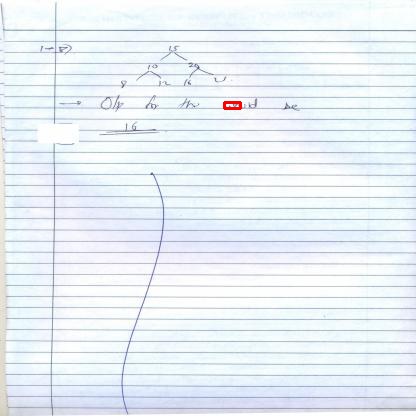 1-8)
15
10 20
8 12 16
O/p for the be
16